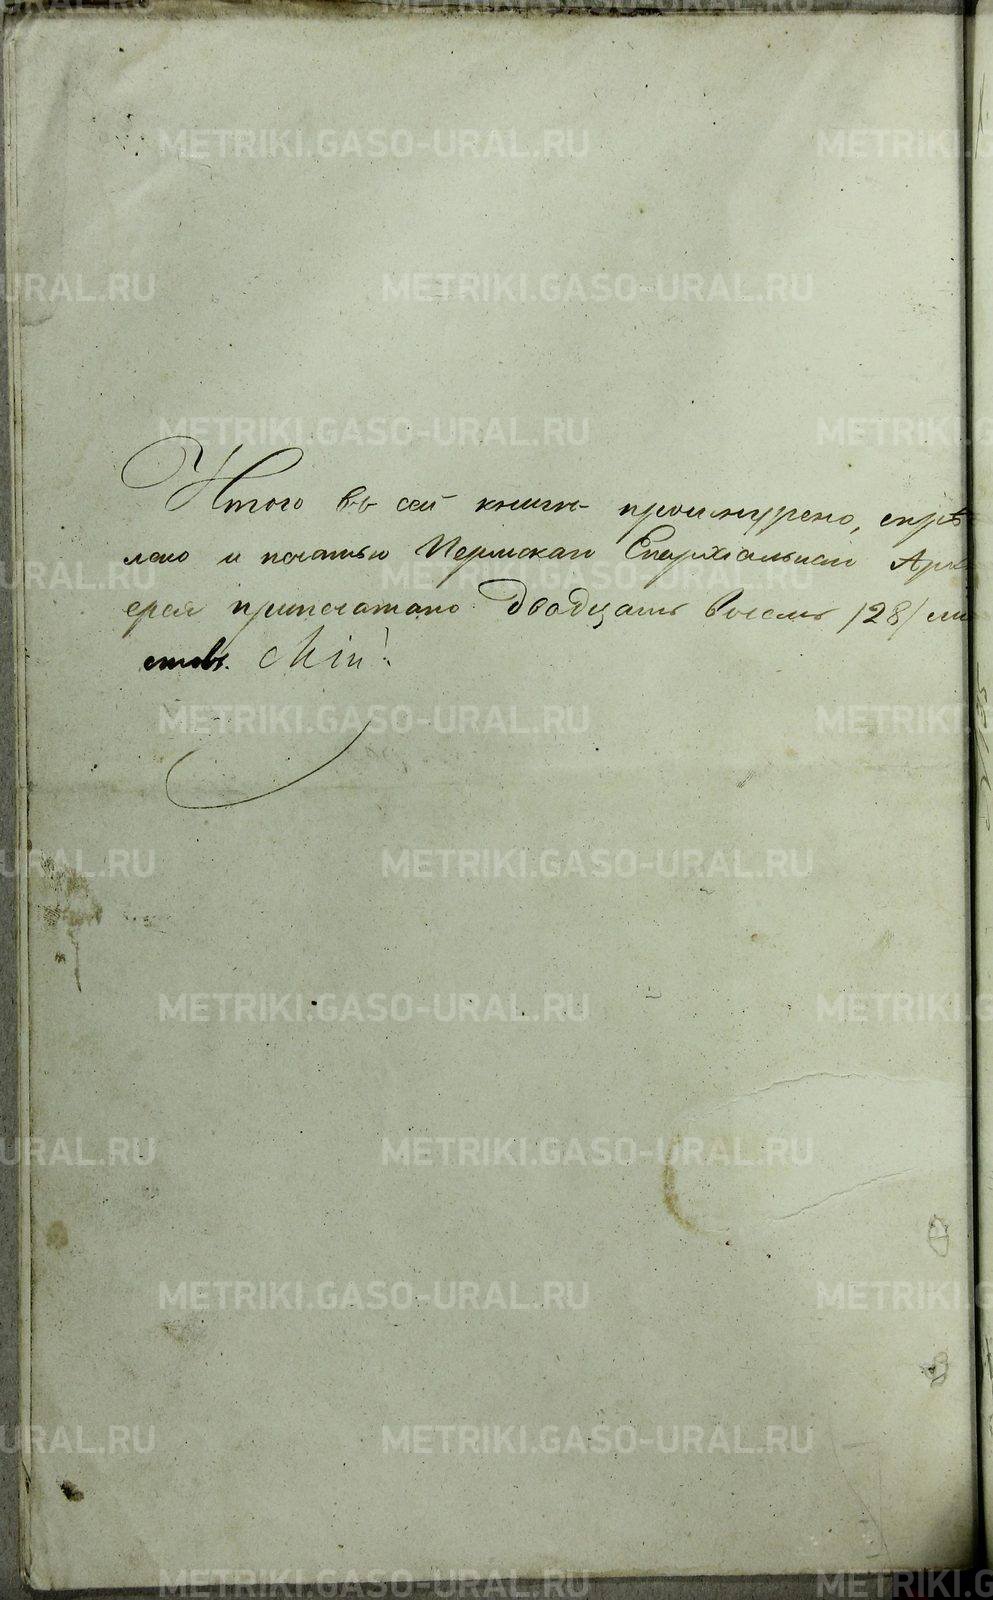 Итого въ сей книгѣ прошнурено, скрѣ
лено и печатью Пермскаго Епархіальнаго Архі
ерея припечатано двадцать восемь /28/ ли
стовъ.
METRIKI.GASO-URAL.RU